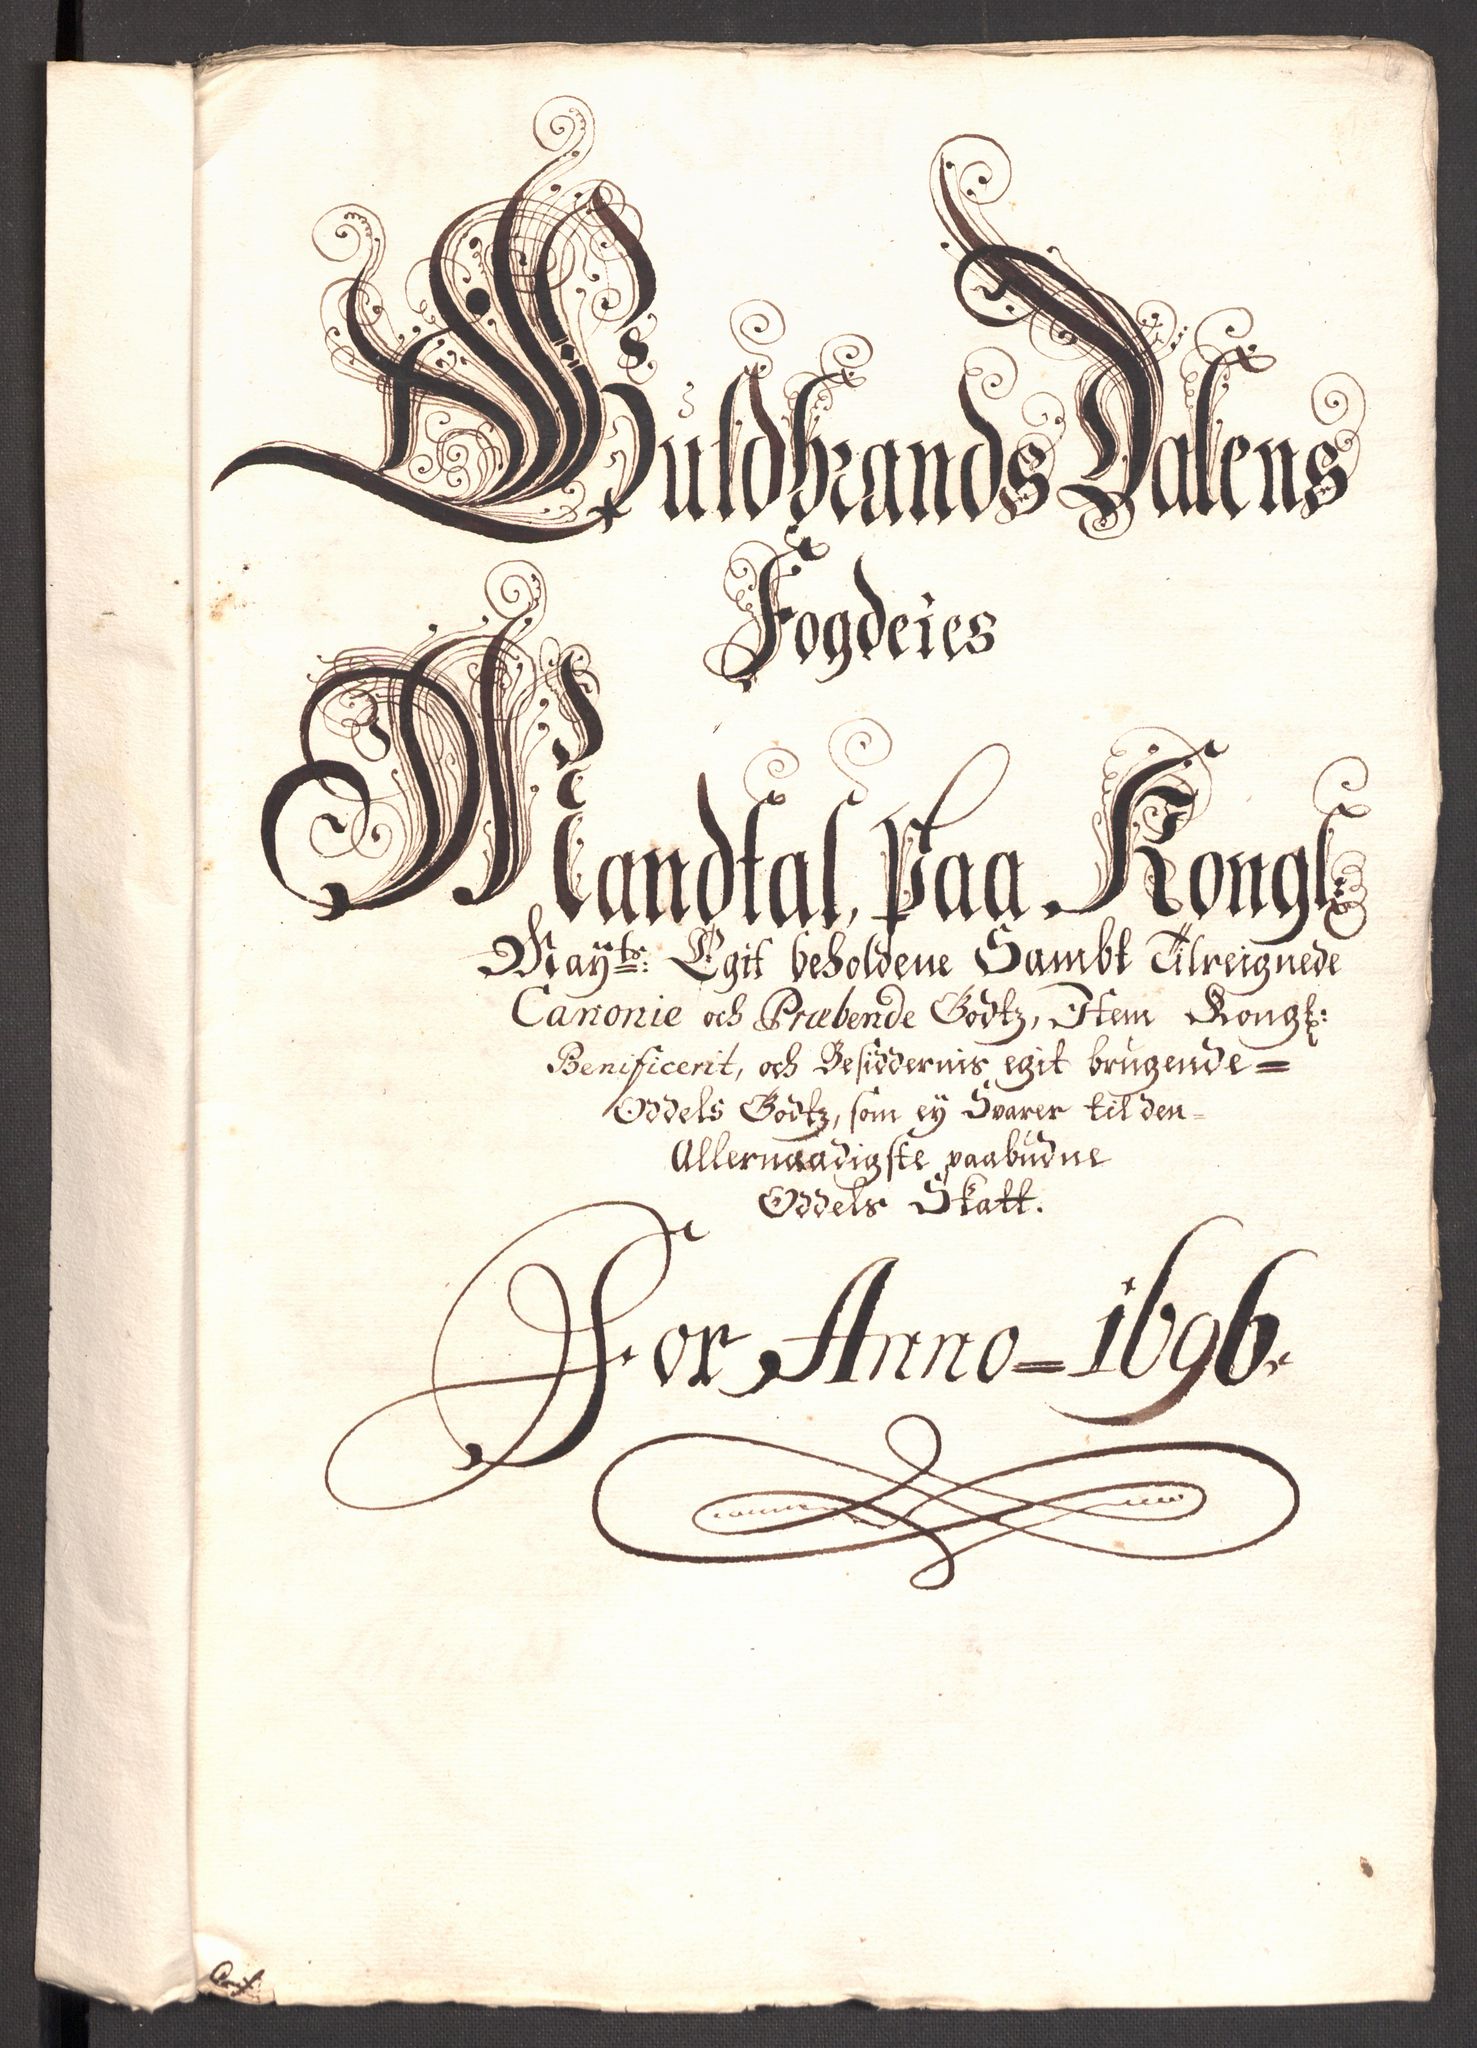 Guldbrands Dalens
Fogdeies
Mandtal, Paa Kongl:
Mayts: Egit beholdene Sambt Tilreignede
Canonie och Præbende Godtz, Item Kongl:
Benificerit, och Besiddernis egit brugende=
Oddels Godtz, som ey Svarer til den-
Allernaadigste paabudne
Oddels Skatt.
For Anno=1696.